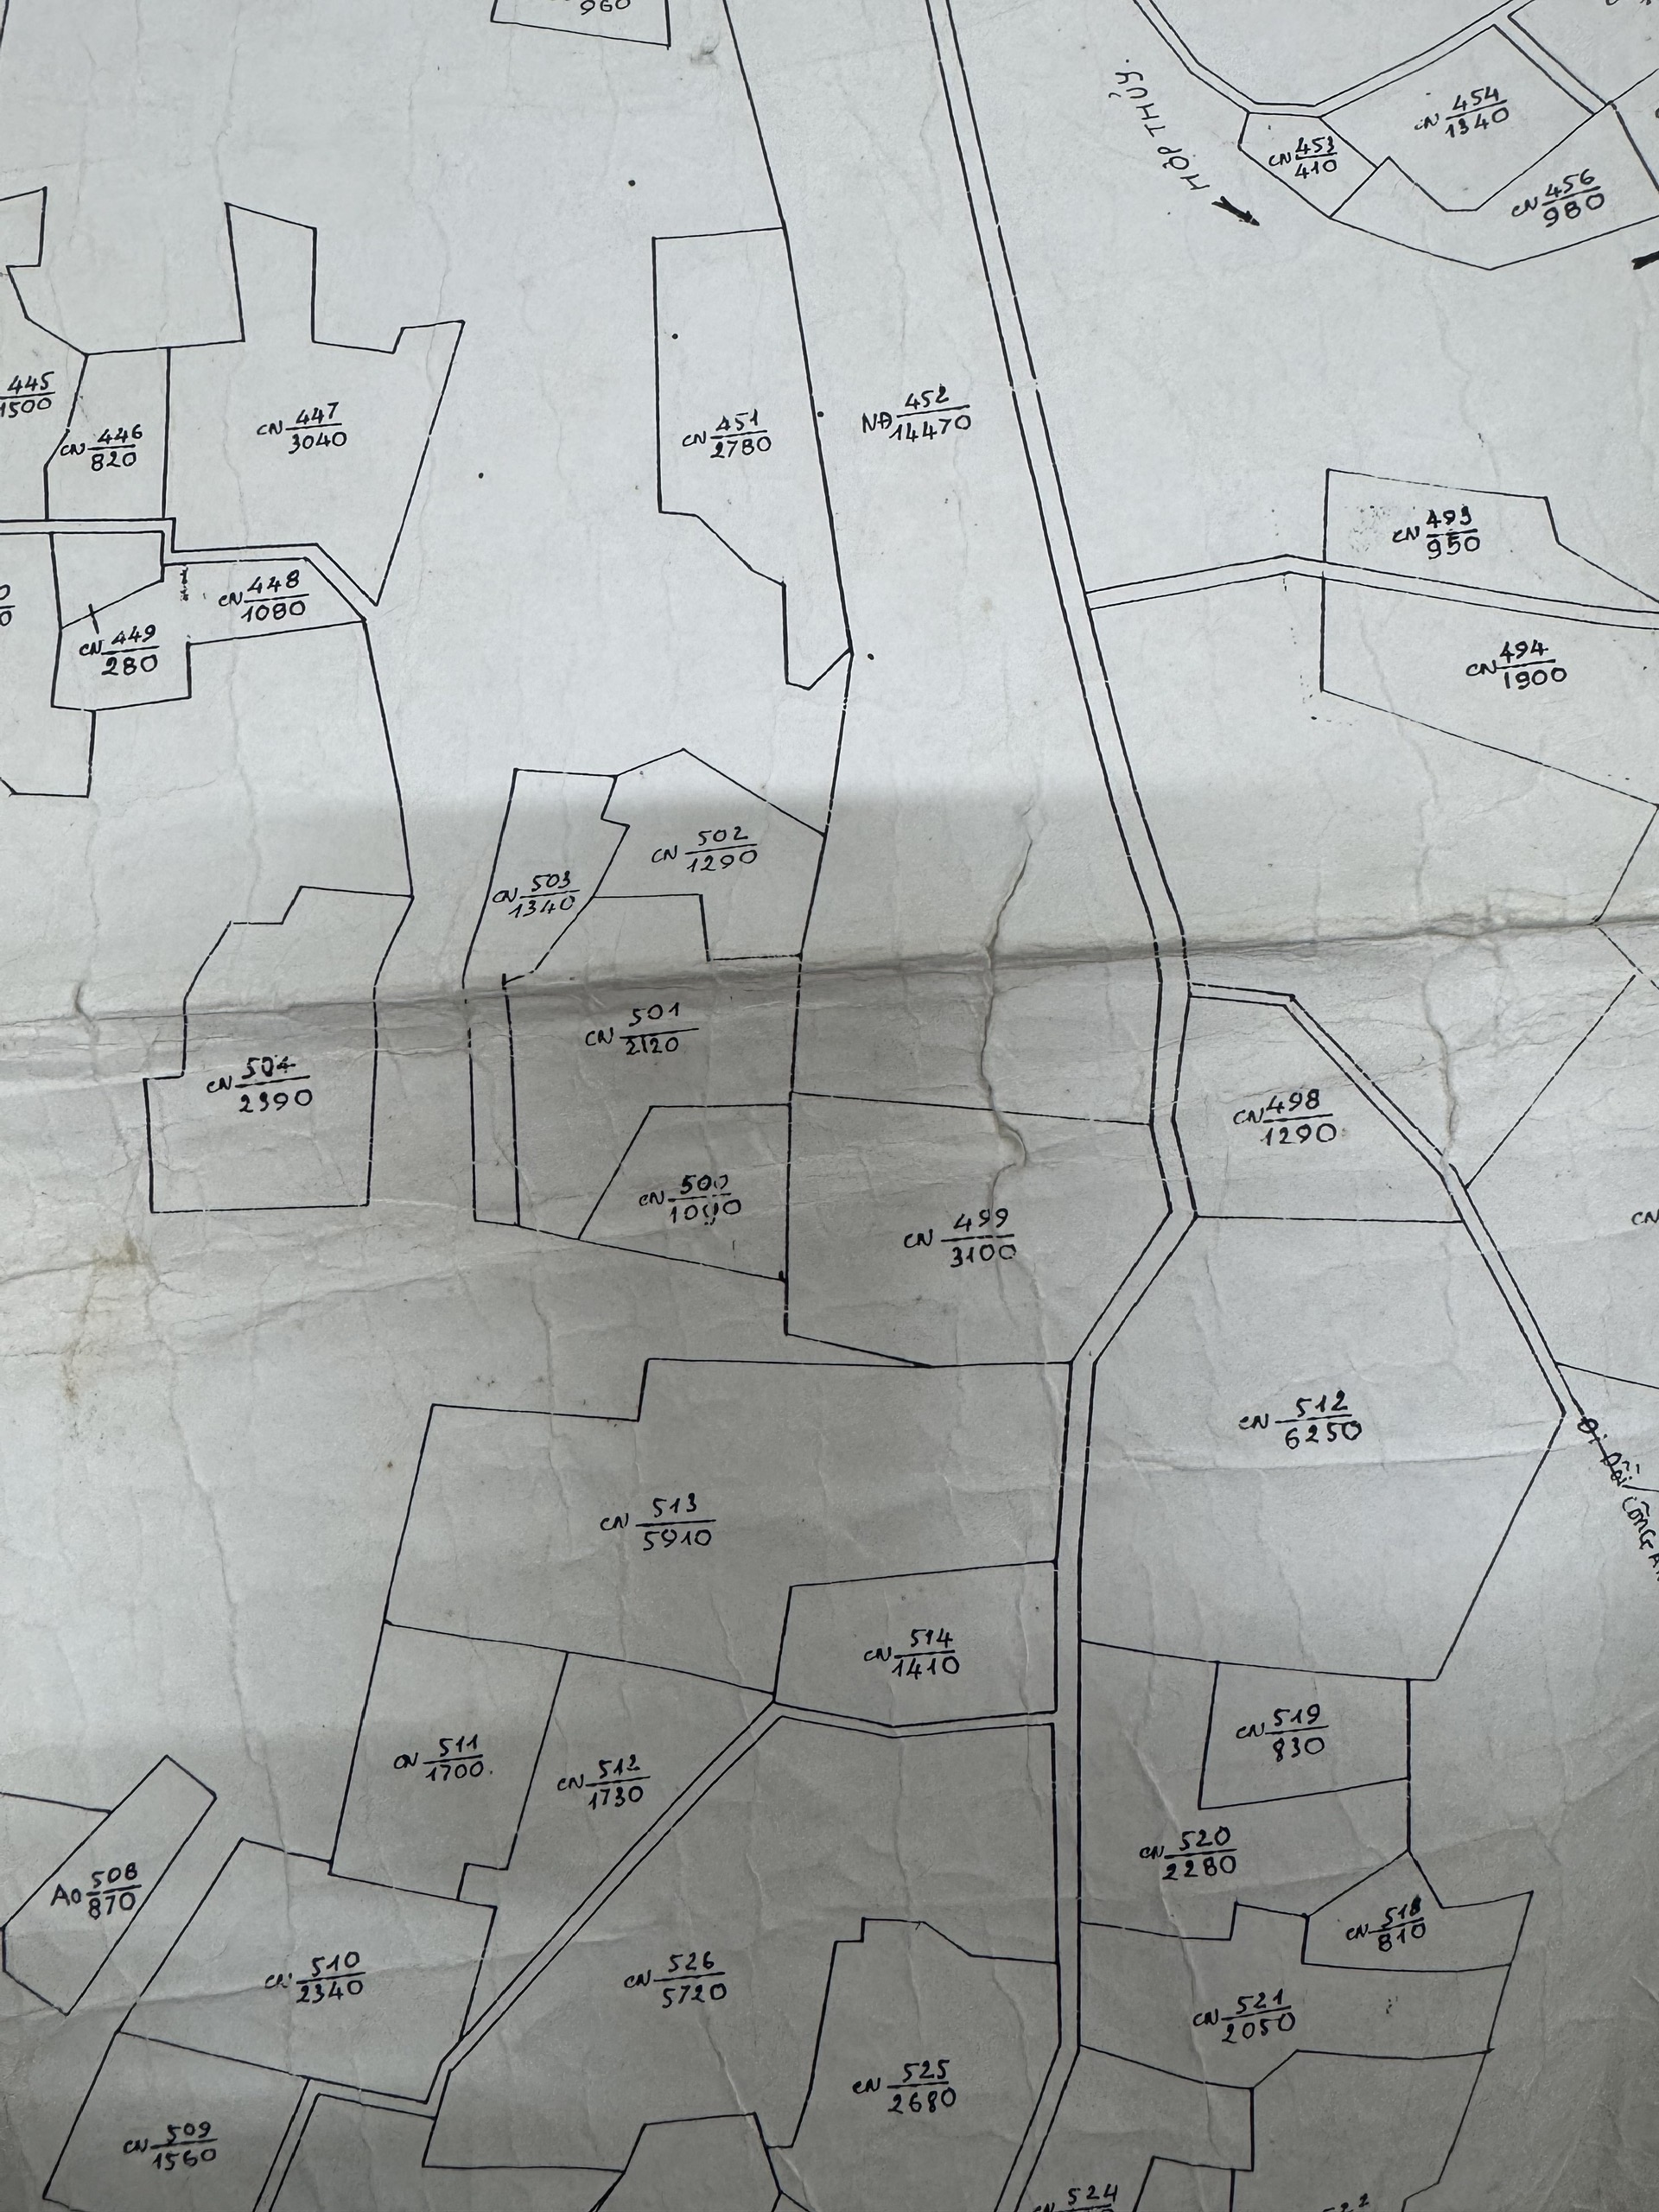 960
HỢP THỦY.
CN 454
1340
CN 453
410
CN 456
980
445
1500
CN 446
820
CN 447
3040
CN 451
2780
NĐ 452
14470
CN 493
950
CN 448
1080
CN 449
280
CN 494
1900
CN 502
1290
CN 503
1340
CN 501
2120
CN 504
2390
CN 498
1290
CN 500
CN 499
3100
CN
CN 512
6250
Đi
CN 513
5910
CN 514
1410
CN 519
830
CN 511
1700
CN 512
1730
CN 520
2280
AO 508
870
CN 518
810
CN 510
2340
CN 526
5720
CN 521
2050
CN 525
2680
CN 509
1560
CN 524